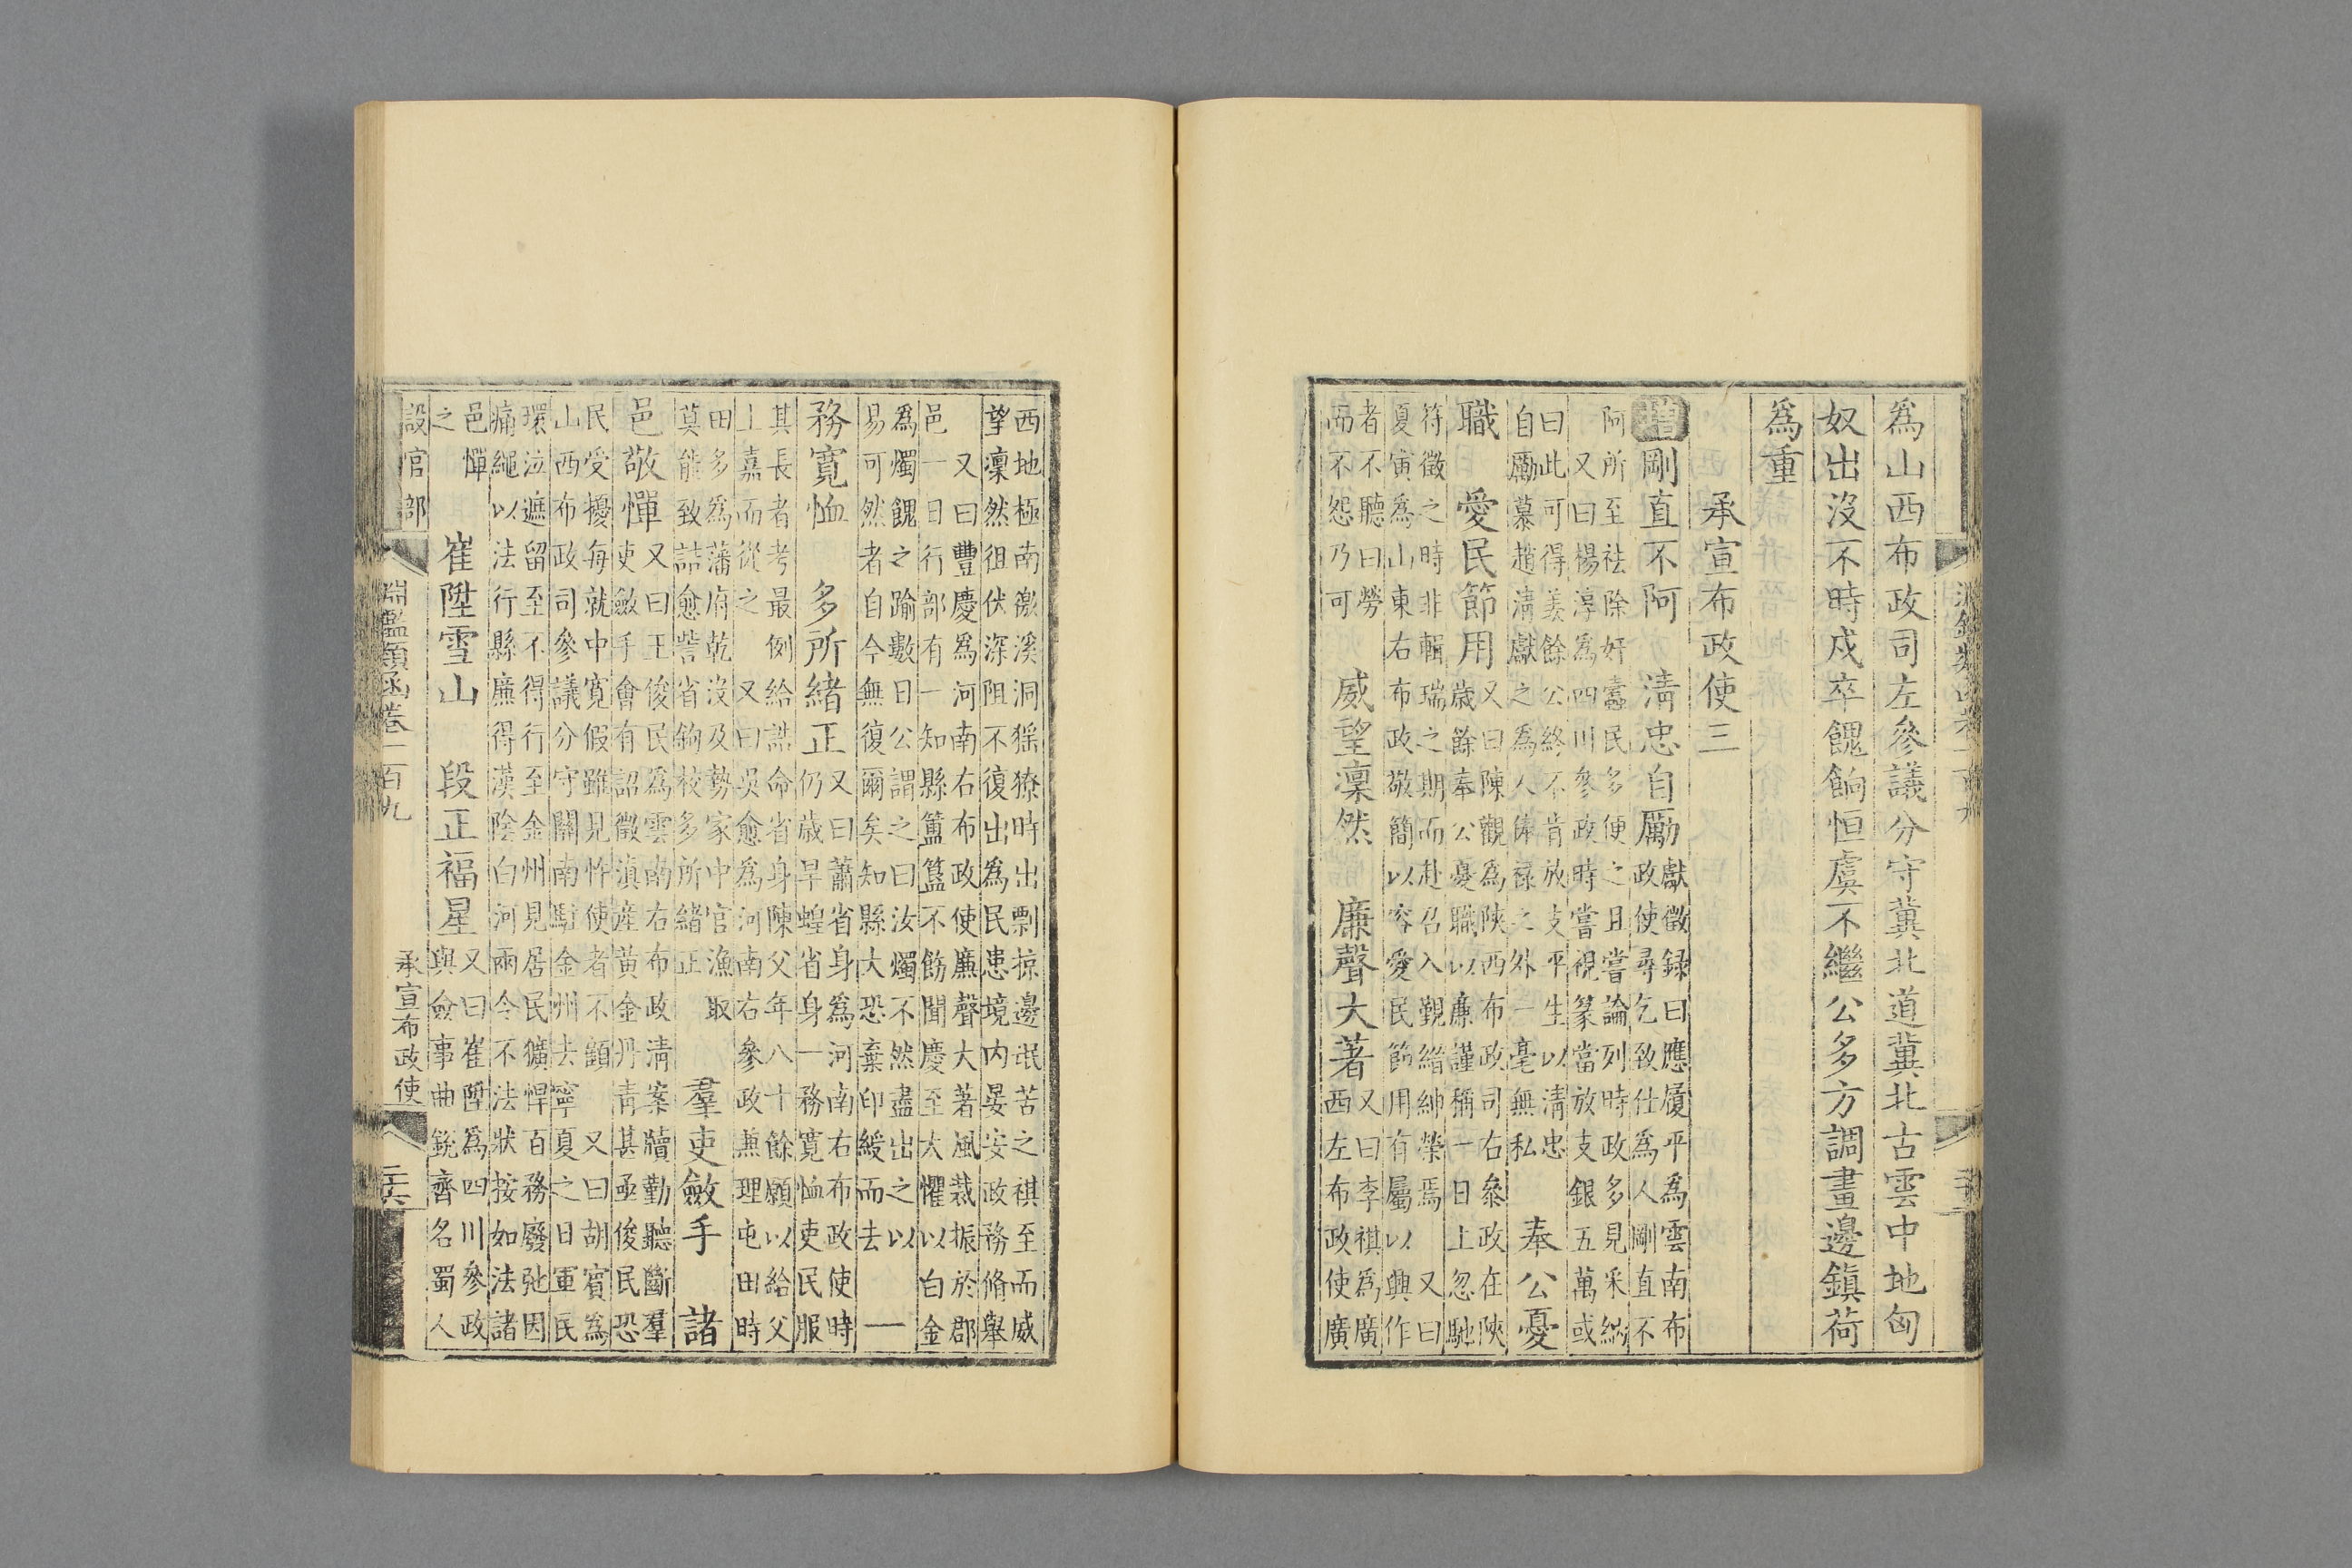 為山西布政司左參議分守冀北道冀北古雲中地匈
奴出沒不時戍卒餽餉恒虞不繼公多方調畫邊鎮荷
為重
承宣布政使三
增剛直不阿　清忠自勵
獻徵録曰應履平為雲南布
政使尋乞致仕為人剛直不
阿所至祛除奸蠹民多便之且嘗論列時政多見采納
又曰楊淳為四川參政時嘗視篆當放支銀五萬或
曰此可得羡餘公終不肯放支平生以清忠
自勵慕趙清獻之為人俸祿之外一毫無私
奉公憂
職　愛民節用
又曰陳觀為陝西布政司右參政在陝
歲餘奉公憂職以廉謹稱一日上忽馳
符徵之時非輯瑞之期而赴召入覲縉紳榮焉　又曰
夏寅為山東右布政敬簡以容愛民節用有屬以興作
者不聽曰勞
而不怨乃可
威望凜然　廉聲大著
又曰李祺為廣
西左布政使廣
西地極南徼溪洞猺獠時出剽掠邊氓苦之祺至而威
望凜然徂伏深阻不復出為民患境内晏安政務脩舉
又曰豐慶為河南右布政使廉聲大著風裁振於郡
邑一日行部有一知縣簠簋不飭聞慶至大懼以白金
為燭餽之踰數日公謂之曰汝燭不然盡出之以
易可然者自今無復爾矣知縣大恐棄印綬而去
一
務寬恤　多所緒正
又曰蕭省身為河南右布政使時
仍歲旱蝗省身一務寬恤吏民服
其長者考最例給誥命省身陳父年八十餘願以給父
上嘉而從之　又曰吳愈為河南右參政兼理屯田時
田多為藩府乾沒及勢家中官漁取
莫能致詰愈訾省鉤校多所緒正
羣吏斂手　諸
邑敬憚
又曰王俊民為雲南右布政清案牘勤聽斷羣
吏斂手會有詔徵滇產黃金丹青甚亟俊民恐
民受擾每就中寬假雖見忤使者不顧　又曰胡賓為
山西布政司參議分守關南駐金州去寧夏之日軍民
環泣遮留至不得行至金州見居民獷悍百務廢弛因
痛繩以法行縣廉得漢陰白河兩令不法狀按如法諸
邑憚
之
崔陞雪山　段正福星
又曰崔陞為四川參政
與僉事曲銳齊名蜀人
設官部　淵鑑類函卷一百九　承宣布政使　二十六